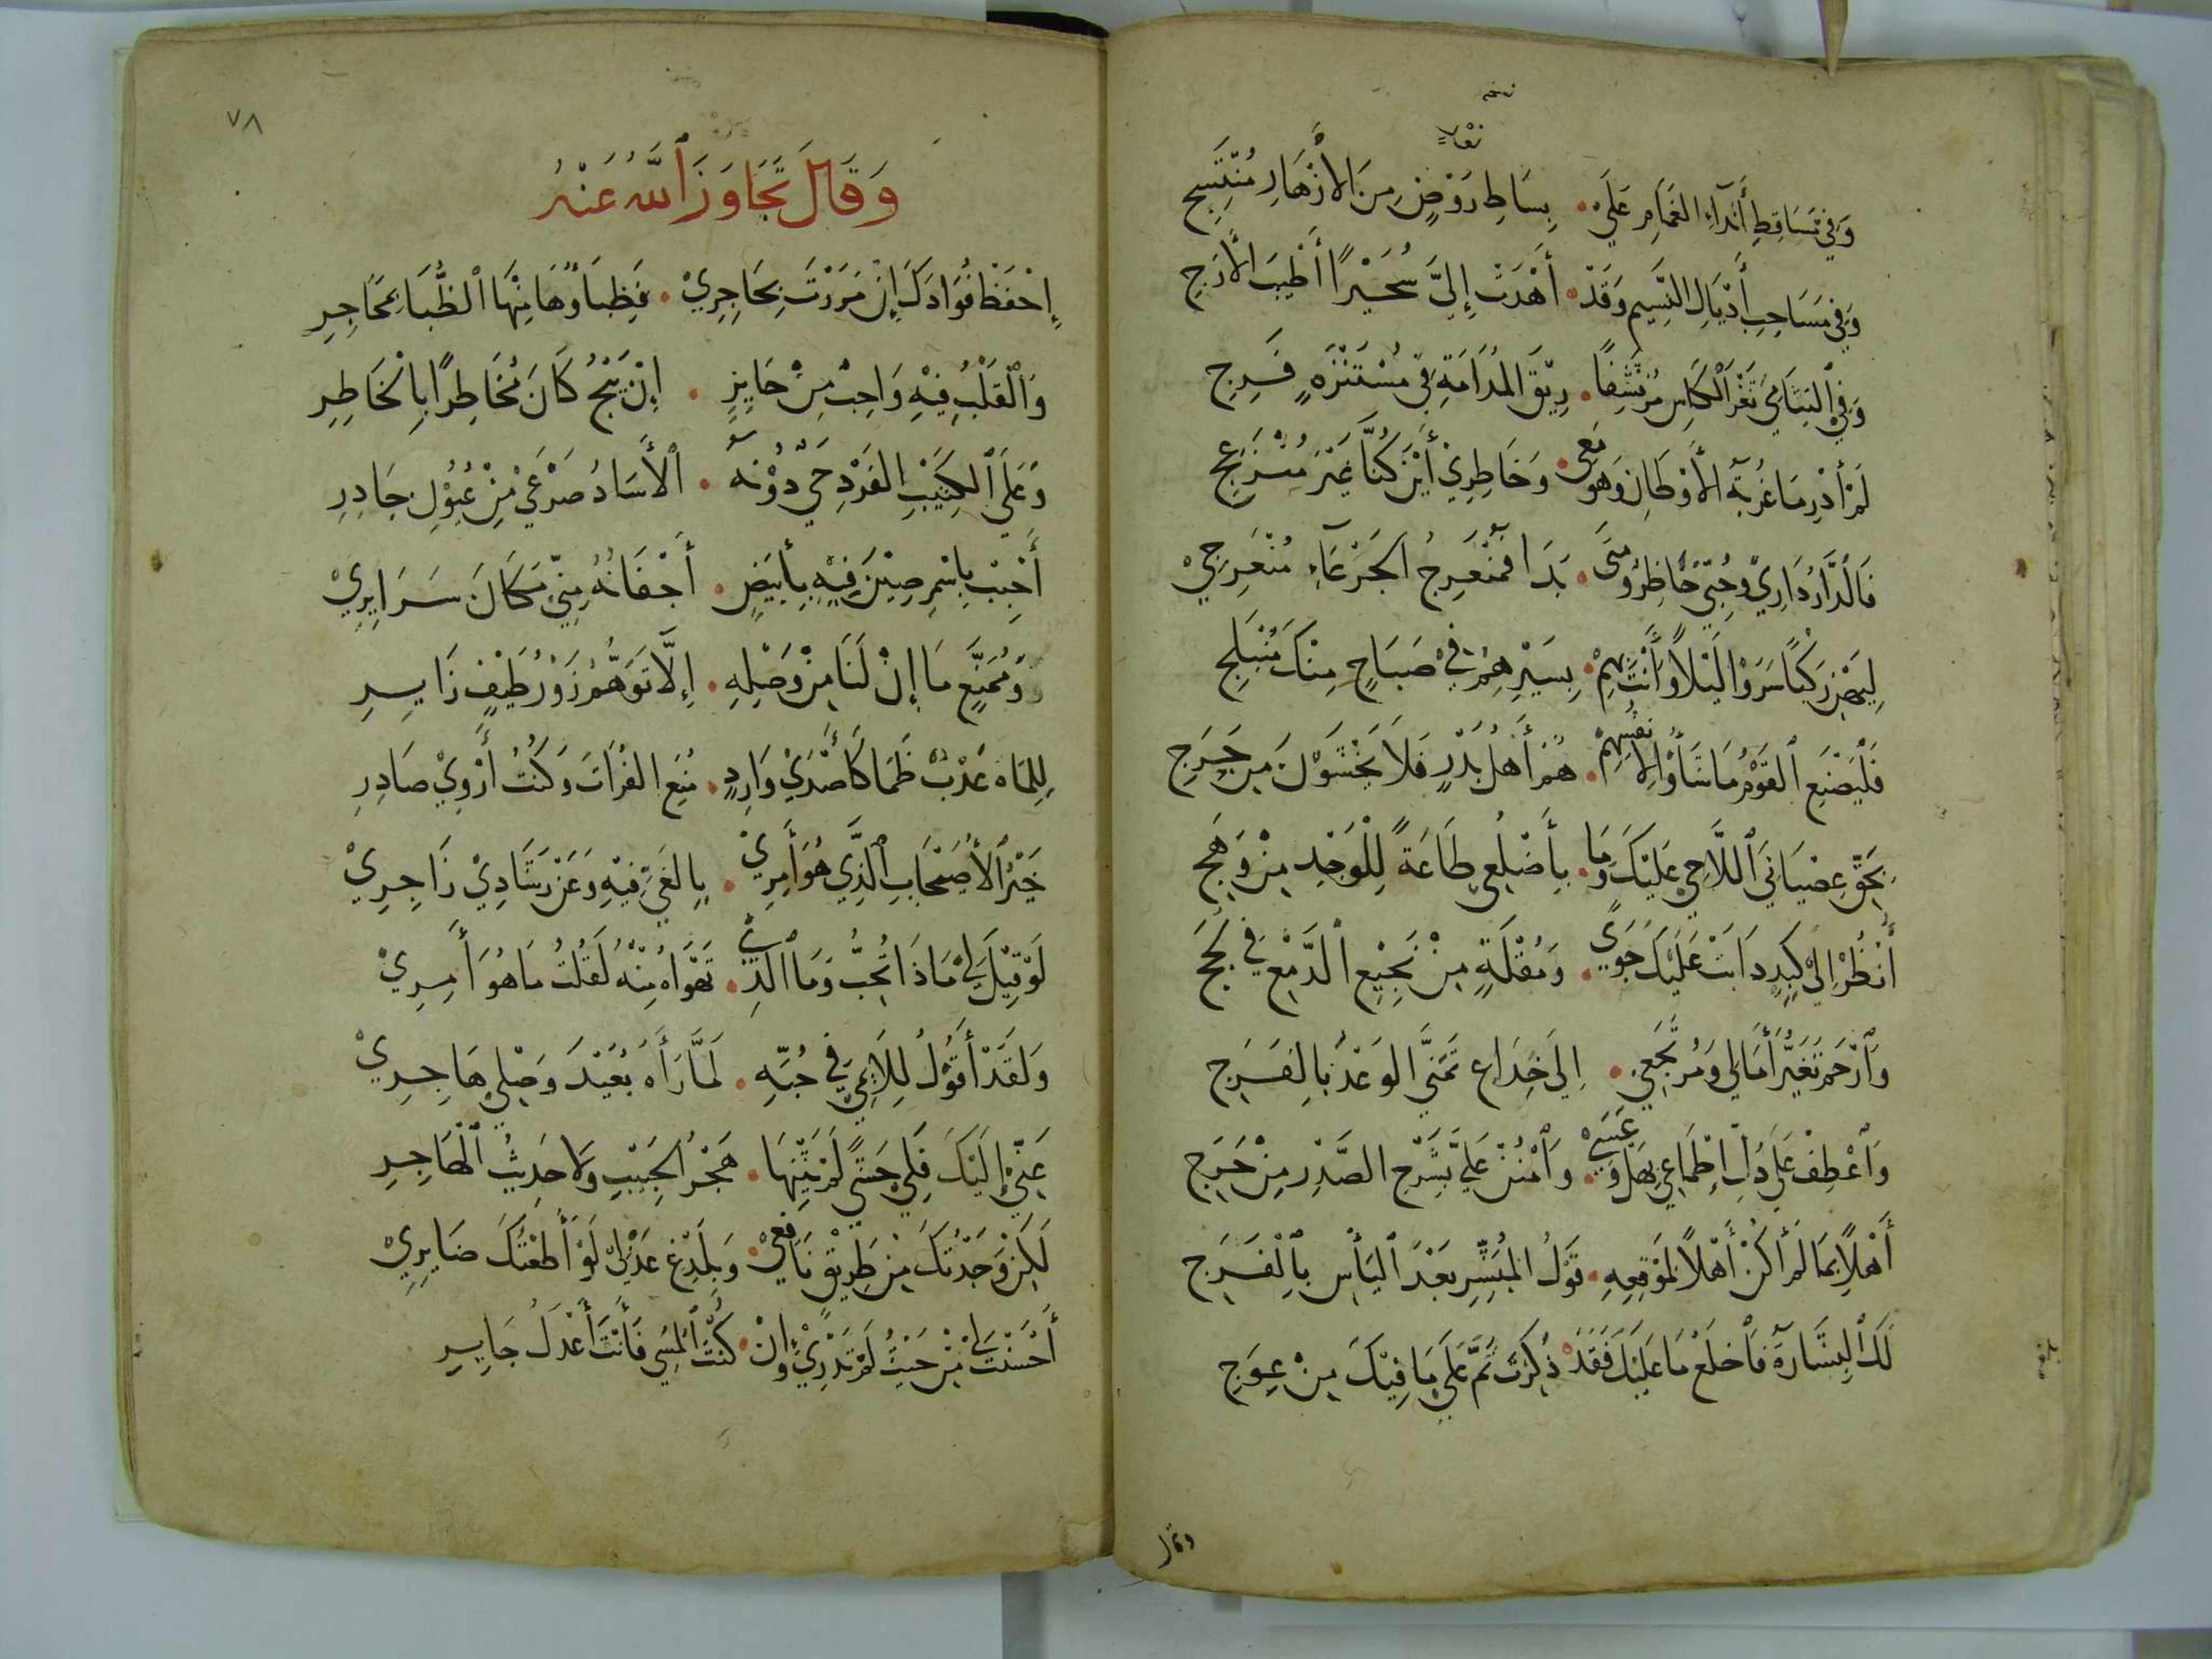 وَفِي تَسَاقِطِ أَنْدَاءِ الغَمَامِ عَلَى • بِسَاطِ رَوْضٍ مِنَ الأَزْهَارِ مُنْتَسِجِ
وَفِي مَسَاحِبِ أَذْيَالِ النَّسِيمِ وَقَدْ • أَهْدَتْ إِلَيَّ سُحَيْرًا أَطْيَبَ الأَرَجِ
وَفِي الْتِثَامِي ثَغْرَ الْكَاسِ مُرْتَشِفًا • رِيْقَ المُدَامَةِ فِي مُسْتَنْزَهٍ فَرِجِ
لَمْ أَدْرِ مَا غُرْبَةُ الأَوْطَانِ وَهُوَ مَعِي • وَخَاطِرِيْ أَيْنَ كُنَّا غَيْرَ مُنْزَعِجِ
فَالدَّارُ دَارِيْ وَحُبِّيْ حَاضِرٌ وَمَتَى • بَدَا فَمُنْعَرِجُ الجَرْعَاءِ مُنْعَرِجِيْ
لِيَهْنِ رَكْبًا سَرَوْا لَيْلًا وَأَنْتَ بِهِمْ • بِسَيْرِهِمْ فِيْ صَبَاحٍ مِنْكَ مُنْبَلِجِ
فَلْيَصْنَعِ القَوْمُ مَا شَاؤُا لِأَنْفُسِهِمْ • هُمْ أَهْلُ بَدْرٍ فَلَا يَخْشَوْنَ مِنْ حَرَجِ
بِحَقِّ عِصْيَانِيَ اللَّاحِيْ عَلَيْكَ وَمَا • بِأَضْلُعِيْ طَاعَةً لِلْوَجْدِ مِنْ وَهَجِ
أُنْظُرْ إِلَىْ كَبِدٍ ذَابَتْ عَلَيْكَ جَوًى • وَمُقْلَةٍ مِنْ نَجِيْعِ الدَّمْعِ فِي لُجَجِ
وَارْحَمْ تَغَيُّرَ أَمَالِي وَمُرْتَجَعِيْ • إِلَى خِدَاعِ تَمَنِّي الوَعْدِ بِالفَرَجِ
وَاعْطِفْ عَلَى ذُلِّ اطْمَاعِيْ بِهَلْ وَعَسَىْ • وَامْنُنْ عَلَيَّ بِشَرْحِ الصَّدْرِ مِنْ حَرَجِ
أَهْلًا بِمَا لَمْ أَكُنْ أَهْلًا لِمَوْقِعِهِ • قَوْلُ المُبَشِّرِ بَعْدَ اليَأْسِ بِالْفَرَجِ
لَكَ الْبِشَارَةُ فَاخْلَعْ مَا عَلَيْكَ فَقَدْ • ذُكِرْتَ ثَمَّ عَلَىْ مَا فِيْكَ مِنْ عِوَجِ
وقال
٧٨
وَقَالَ تَجَاوَزَ اللهُ عَنْهُ
إِحْفَظْ فُؤَادَكَ إِنْ مَرَرْتَ بِحَاجِرِيْ • فَظِبَاؤُهَا مِنْهَا الظُّبَا بِمَحَاجِرِ
وَالْقَلْبُ فِيْهِ وَاجِبٌ مِنْ جَايِزٍ • إِنْ يَنْجُ كَانَ مُخَاطِرًا بِالخَاطِرِ
وَعَلَى الكَثِيْبِ الفَرْدِ حَيٌّ دُوْنَهُ • الأَسَادُ صَرْعَىْ مِنْ عُيُوْنِ جَاذِرِ
أَحْبِبْ بِاسْمِرِ صِيْنَ فِيْهِ بِأَبْيَضٍ • أَجْفَانُهُ مِنِّيْ مَكَانَ سَرَايِرِيْ
وَمُمَنَّعٍ مَا إِنْ لَنَا مِنْ وَصْلِهِ • إِلَّا تَوَهُّمُ زَوْرِ طَيْفٍ زَايِرِ
لِلِمَاهُ عُدْتُ ظَمًا كَأَصْدَىْ وَارِدٍ • مُنِعَ الفُرَاتَ وَكُنْتُ أَرْوَيْ صَادِرِ
خَيْرُ الأُصَيْحَابِ الَّذِي هُوَ أَمِرِيْ • بِالغَيِّ فِيْهِ وَعَنْ رَشَادِيْ زَاجِرِيْ
لَوْ قِيْلَ لِيْ مَاذَا تُحِبُّ وَمَا الَّذِيْ • تَهْوَاهُ مِنْهُ لَقُلْتُ مَا هُوَ أَمِرِيْ
وَلَقَدْ أَقُوْلُ لِلَايِمِيْ فِي حُبِّهِ • لَمَّا رَأَهُ بُعَيْدَ وَصْلِي هَاجِرِيْ
عَنِّيْ إِلَيْكَ فَلِيْ حَشًى لَمْ يَثْنِهَا • هَجْرُ الحَبِيْبِ وَلَا حَدِيْثُ الهَاجِرِ
لَكِنْ وَجَدْتُكَ مِنْ طَرِيْقٍ نَافِعِيْ • وَبِلَدْغِ عَذْلِيْ لَوْ أَطَعْتُكَ ضَايِرِيْ
أَحْسَنْتَ لِيْ مِنْ حَيْثُ لَمْ تَدْرِيْ وَإِنْ • كُنْتَ الْمُسِي فَأَنْتَ أَعْدَلُ جَايِرِ